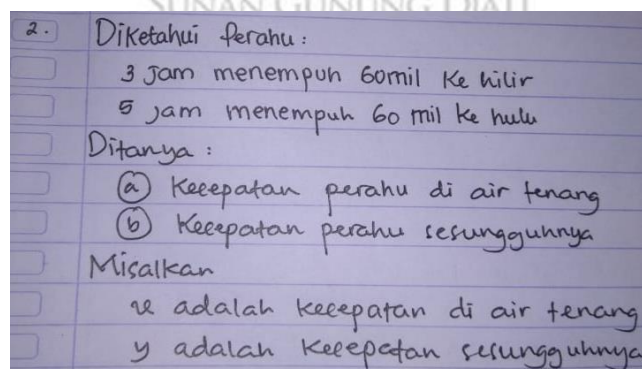 SUNAN GUNUNG DJATI
2. Diketahui Perahu:
3 Jam menempuh 60mil Ke hilir
5 jam menempuh 60 mil ke hulu
Ditanya:
(a) Kecepatan perahu di air tenang
(b) Kecepatan perahu sesungguhnya
Misalkan
x adalah kecepatan di air tenang
y adalah kecepatan sesungguhnya